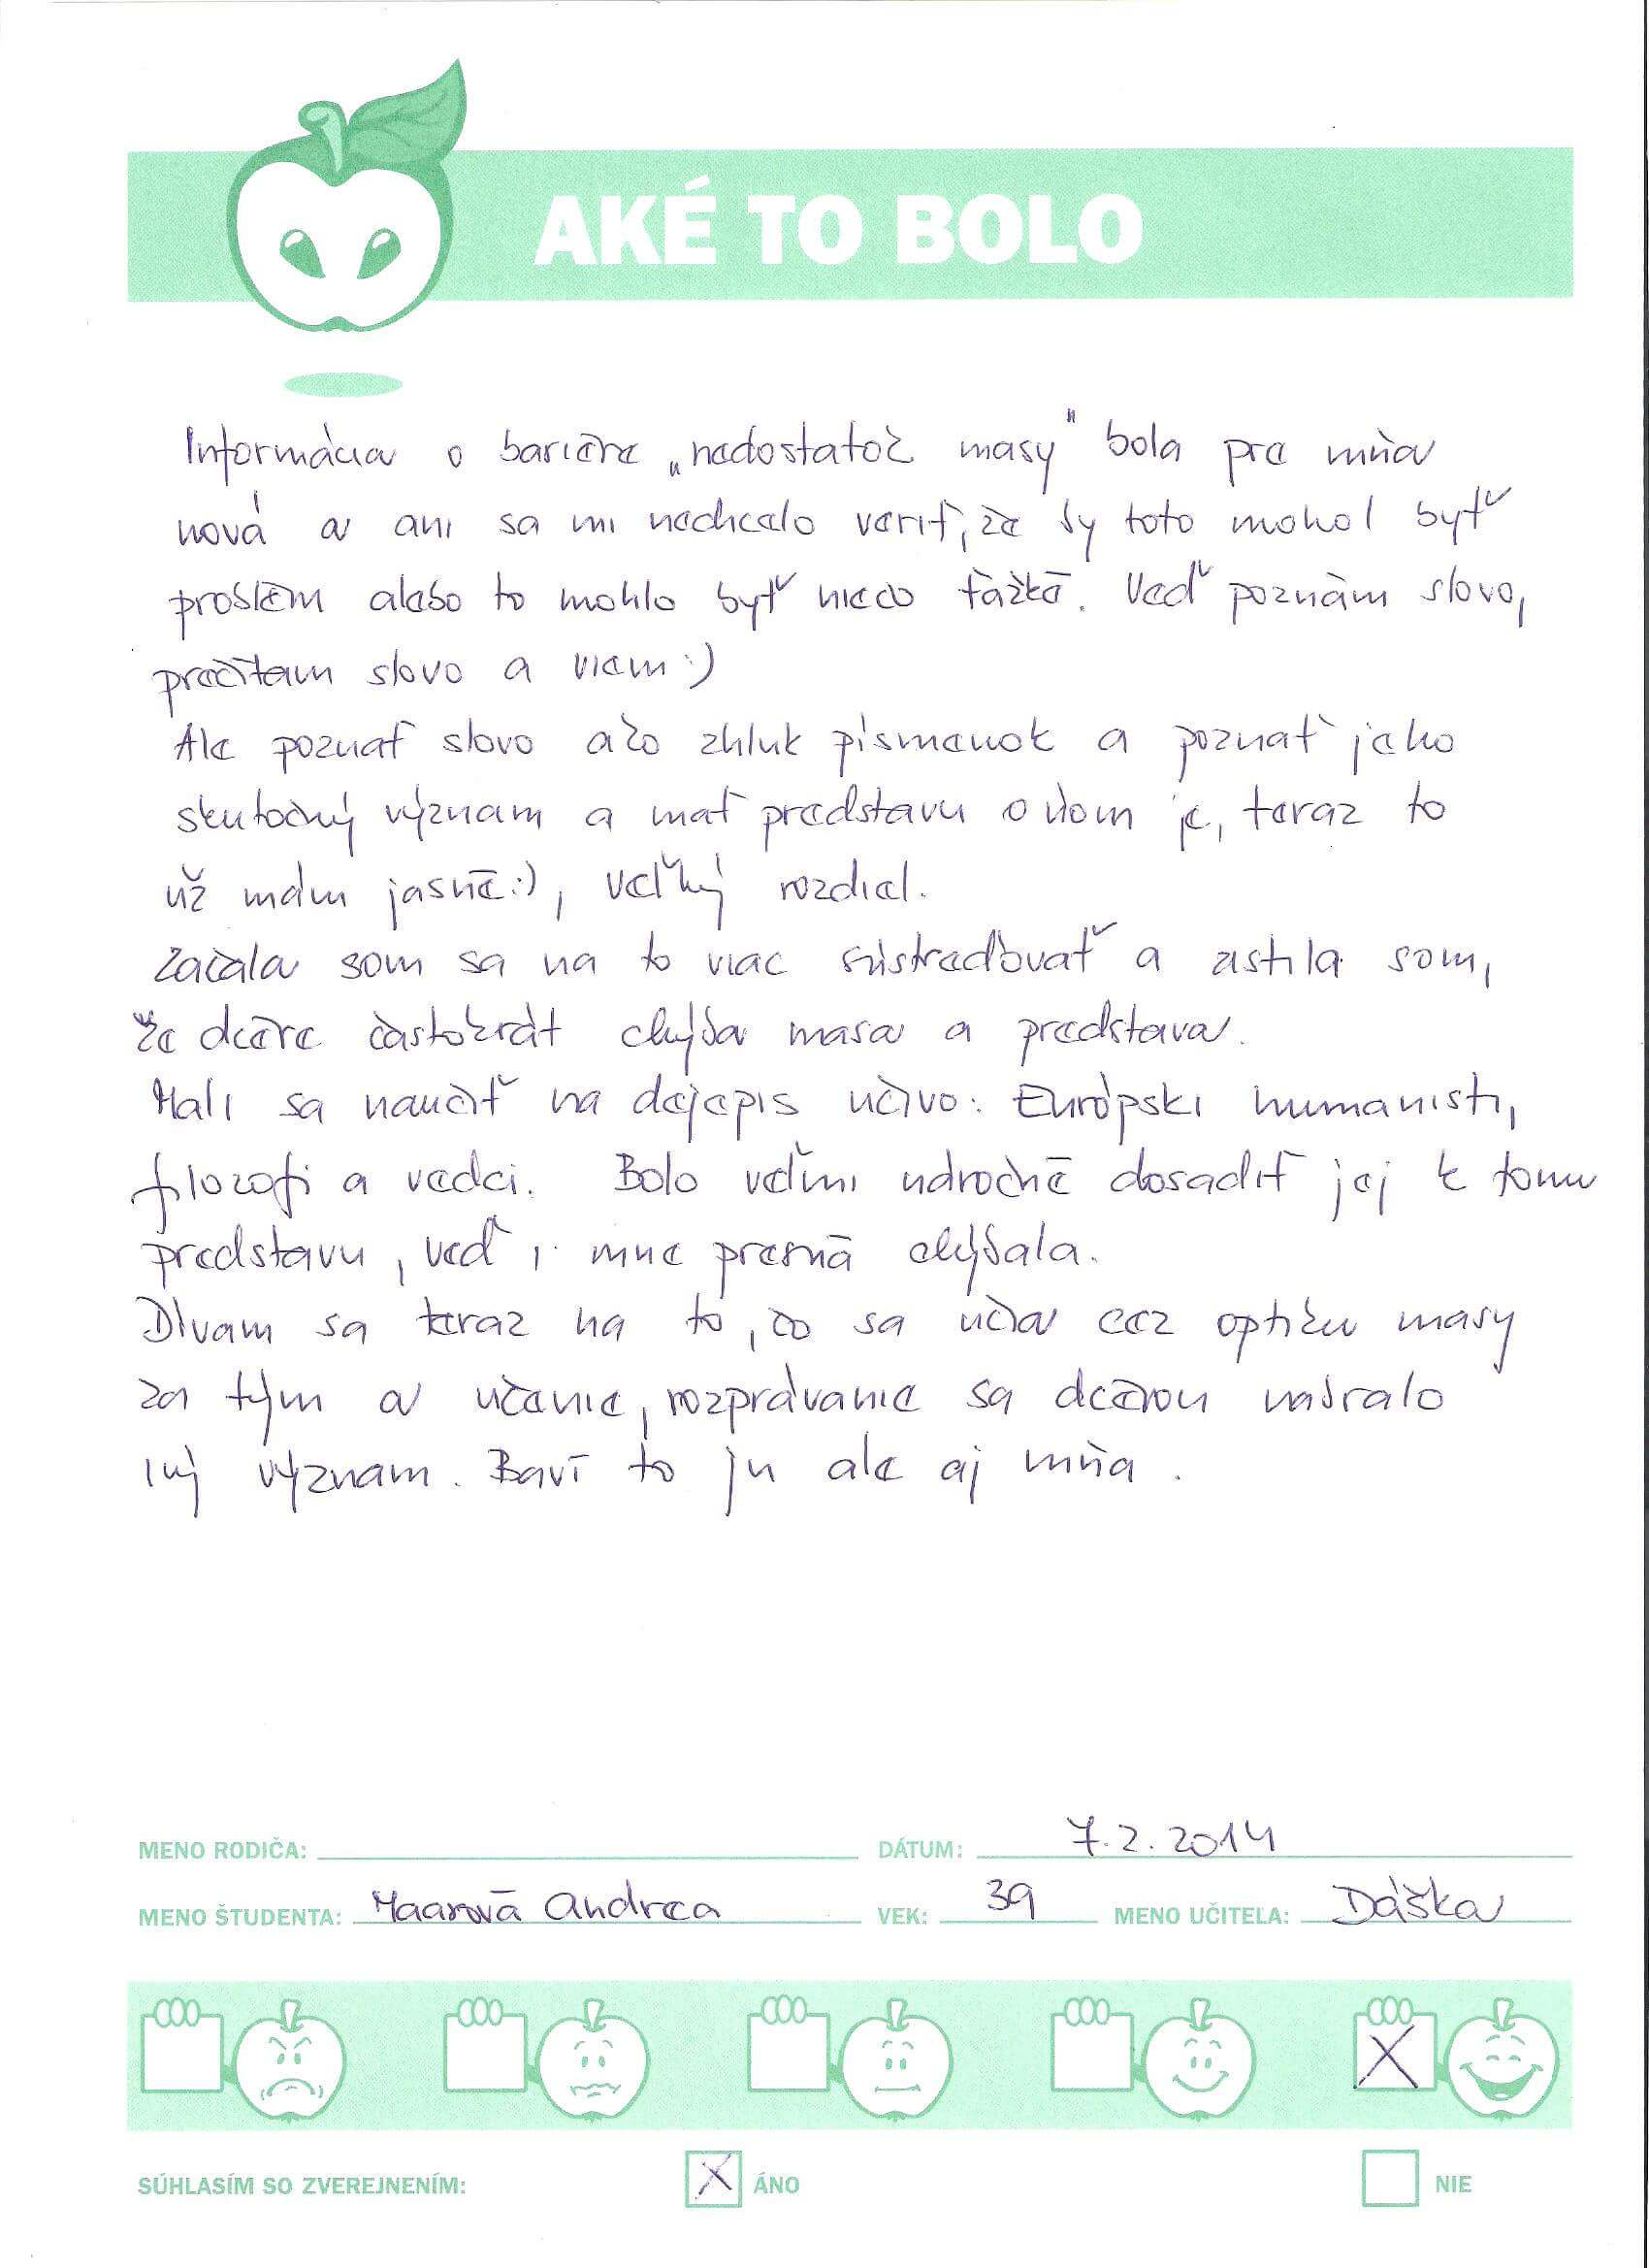 AKÉ TO BOLO
Informácia o bariére „nedostatok masy" bola pre mňa
nová a ani sa mi nechcelo veriť, že by toto mohol byť
problém alebo to mohlo byť niečo ťažké. Veď poznám slovo,
prečítam slovo a viem :)
Ale poznať slovo ako zhluk písmenok a poznať jeho
skutočný význam a mať predstavu o ňom je, teraz to
už mám jasné :), veľký rozdiel.
Začala som sa na to viac sústreďovať a zistila som,
že dcére častokrát chýba masa a predstava.
Mali sa naučiť na dejepis učivo: Európski humanisti,
filozofi a vedci. Bolo veľmi náročné dosadiť jej k tomu
predstavu, veď i mne presná chýbala.
Dívam sa teraz na to, čo sa učia cez optiku masy
za tým a učenie, rozprávanie sa dcérou nabralo
iný význam. Baví to ju ale aj mňa.
MENO RODIČA: DÁTUM: 7.2.2014
MENO ŠTUDENTA: Maarová Andrea VEK: 39 MENO UČITEĽA: Dáška
SÚHLASÍM SO ZVEREJNENÍM: X ÁNO NIE